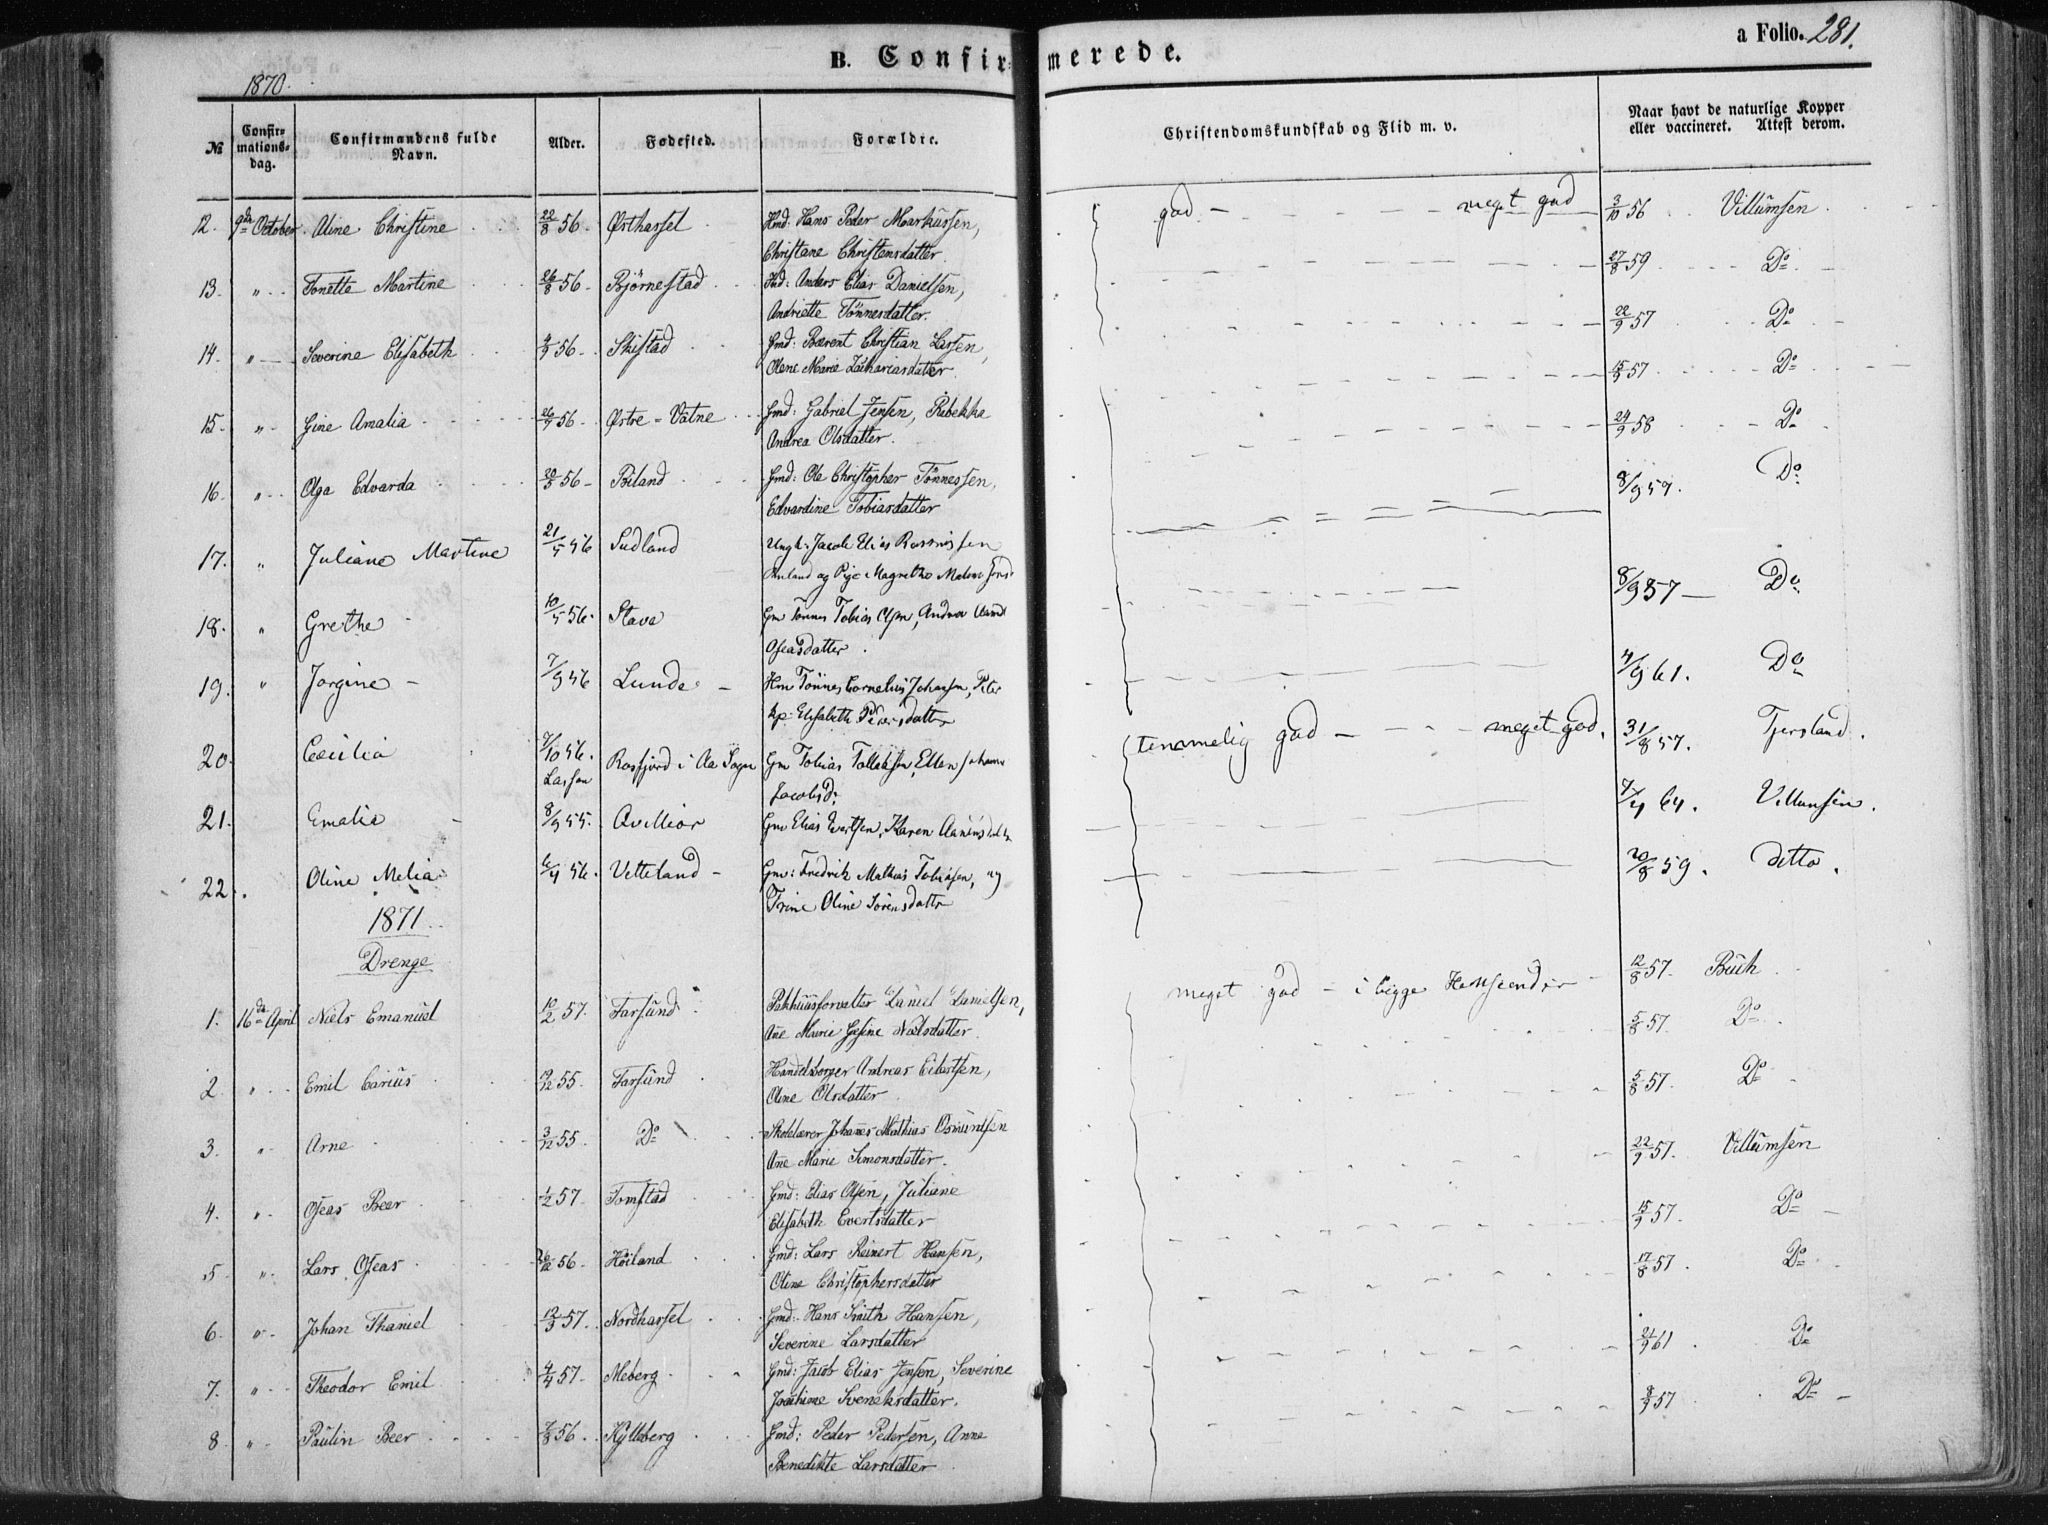 1870.
B. Confirmerede.
a Folio. 281.
№
Confirmationsdag.
Confirmandens fulde Navn.
Alder.
Fødested.
Forældre.
Christendomskundskab og Flid m. v.
Naar havt de naturlige Kopper eller vaccineret. Attest derom.
12. 9de October. Aline Christine 22/8 56. Østhassel Hmd: Hans Peder Markussen, god - meget god 3/10 56 Villumsen
Christane Christensdatter.
13. " Tonette Martine 26/8 56. Bjørnestad Ind: Anders Elias Danielsen, 27/8 59 Do
Andriette Tønnesdatter.
14. " Severine Elisabeth 56. Skistad Gmd: Bærent Christian Larsen, 22/9 57 Do
Olene Marie Zachariasdatter.
15. " Gine Amalia 26/9 56. Østre-Vatne Gmd: Gabriel Jensen, Rebekka 15/9 57 Do
Andrea Olsdatter.
16. " Olga Edvarda 56 Biland Gmd: Ole Christopher Tønnessen, 24/9 58 Do
Edvardine Tobiasdatter
17. " Juliane Martine 21/5 56 Sudland Ungk: Jacob Elias Rasmissen 8/9 57. Do
og Pige Magrethe
18. " Grethe 10/5 56. Stave Gm Tønnes Tobias Olsen, Andrea 8/9 57 Do
Oseasdatter.
19. " Jorgine 7/9 56 Lunde Hm Tönnes Cornelius Johansen, Peter 4/9 61. Do
Elisabeth Pedersdatter
20. Cecilia 7/10 56. Rosfjord i Aa Sogn Gm Tobias Tollaksen, Ellen temmelig god - meget god. 31/8 57. Tjersland.
Jacobsd.
21. Emalia 8/9 55. Qvilliør Gm Elias Evertsen, Karen 7/4 64. Villumsen.
22. Oline Melia 6/4 56. Vetteland Gm: Fredrik Mathias Tobiasen, og 20/8 59. ditto.
Trine Oline Sørensdattr
1871.
Drenge
1. 16de April Niels Emanuel 10/2 57. Farsund. Pakhuusforvalter Daniel Danielsen, meget god - i begge Henseender 12/8 57. Buch
Ane Marie Gesine Nielsdatter.
2. " Emil Carius 19/12 55. Farsund Handelsborger Andreas Eilertsen, 5/8 57. Do
Oline Olsdatter.
3. " Arne 3/12 55. Do Skolelærer Johanes Mathias Osmundsen 5/8 57. Do
Ane Marie Simonsdatter.
4. " Oseas Beer 1/2 57. Tomstad Gmd: Elias Olsen, Juliane 22/9 57. Villumsen
Elisabeth Evertsdatter
5. " Lars Oseas 56. Høiland Gmd: Lars Reinert Hansen, 15/9 57. Do
Oline Christophersdatter
6. " Johan Thaniel 12/3 57. Nordhassel Gmd: Hans Smith Hansen, 17/8 57. Do
Severine Larsdatter
7. " Theodor Emil 4/4 57. Meberg Gmd: Jacob Elias Jensen, Severine 21/9 61 Do
Joachime Svenksdatter.
8. " Paulin Beer 7/8 56. Kylleberg Gmd: Peder Pedersen, Anne 8/9 57. Do
Benedikte Larsdatter